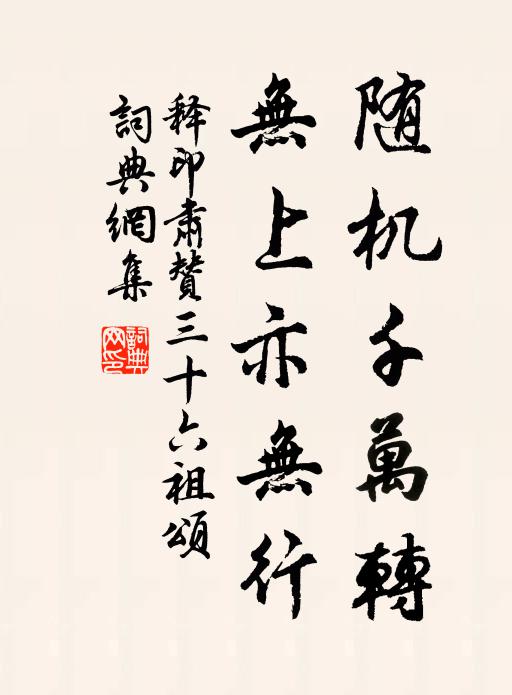 随机千萬轉
無上亦無行
释印肃贊三十六祖頌
詞典網集
詞典網印